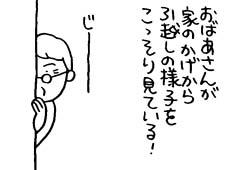 おばあさんが
家のかげから
引越しの様子を
こっそり見ている！
じーーー